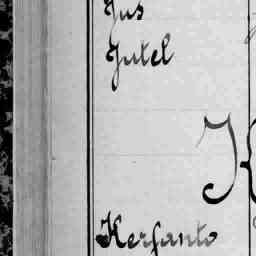 Jus
Jutel
K
Kerfanto